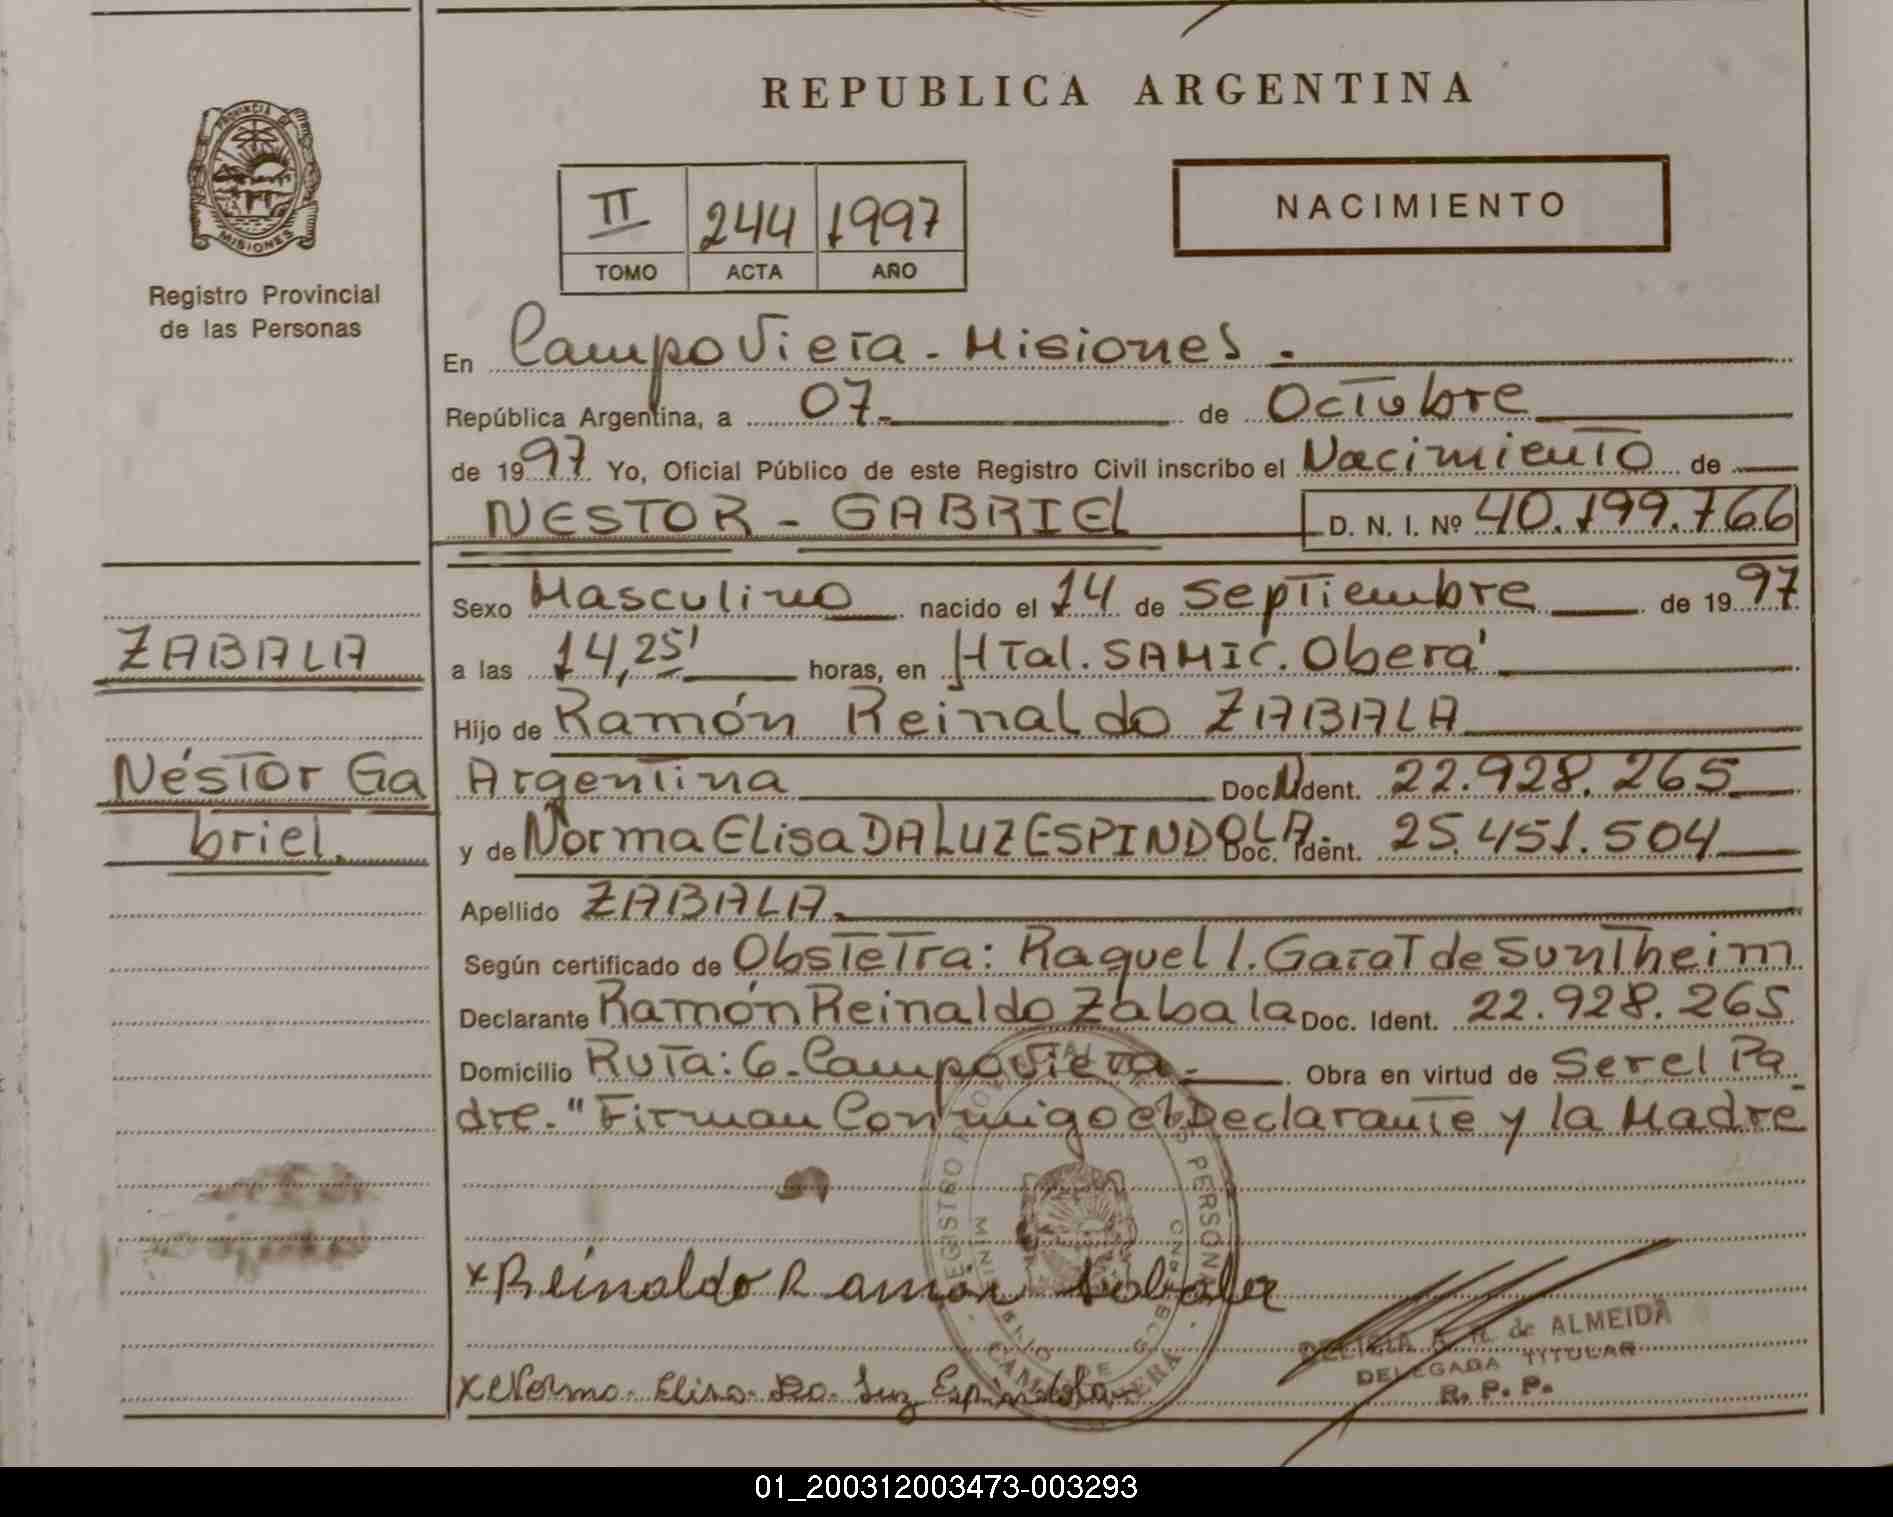 REPUBLICA ARGENTINA
PROVINCIA DE
MISIONES
Registro Provincial
de las Personas
II 244 1997
TOMO ACTA AÑO
NACIMIENTO
En Campo Viera - Misiones.
República Argentina, a 07 de Octubre
de 1997 Yo, Oficial Público de este Registro Civil inscribo el Nacimiento de
NESTOR - GABRIEL D. N. I. Nº 40.199.766
Sexo Masculino nacido el 14 de Septiembre de 1997
ZABALA
a las 14,25' horas, en HTal. SAMIC. Oberá
Hijo de Ramón Reinaldo ZABALA
Néstor Ga
briel.
Argentina Doc. Ident. 22.928.265
y de Norma Elisa DA LUZ ESPINDOLA Doc. Ident. 25.451.504
Apellido ZABALA.
Según certificado de Obstetra: Raquel I. Garat de Suntheim
Declarante Ramón Reinaldo Zabala Doc. Ident. 22.928.265
Domicilio Ruta: 6 - Campo Viera - Obra en virtud de Ser el Pa
dre. "Firman Conmigo el Declarante y la Madre
REGISTRO PERSONAS
x Reinaldo Ramón Zabala
DELICIA R. de ALMEIDA
DELEGADA TITULAR
R. P. P.
x Norma Elisa Da Luz Espindola
01_200312003473-003293